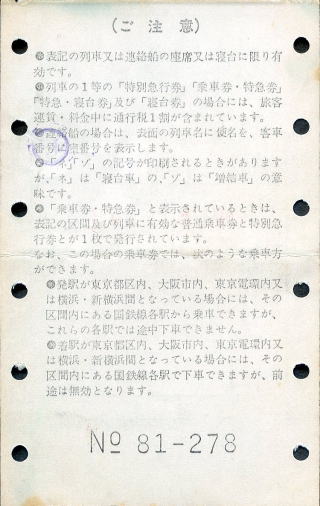 (ご注意)
表記の列車又は連絡船の座席又は寝台に限り有
効です。
列車の1等の「特別急行券」「乗車券・特急券」
「特急・寝台券」及び「寝台券」の場合には、旅客
運賃・料金中に通行税1割が含まれています。
連絡船の場合は、表面の列車名に便名を、客車
番号に座番号を表示します。
「ネ」「ゾ」の記号が印刷されるときがあります
が、「ネ」は「寝台車」の、「ゾ」は「増結車」の意
味です。
「乗車券・特急券」と表示されているときは、
表記の区間及び列車に有効な普通乗車券と特別急
行券とが1枚で発行されています。
なお、この場合の乗車券では、次のような乗車方
ができます。
発駅が東京都区内、大阪市内、東京電環内又
は横浜・新横浜間となっている場合には、その
区間内にある国鉄線各駅から乗車できますが、
これらの各駅では途中下車できません。
着駅が東京都区内、大阪市内、東京電環内又
は横浜・新横浜間となっている場合には、その
区間内にある国鉄線各駅で下車できますが、前
途は無効となります。
№ 81-278